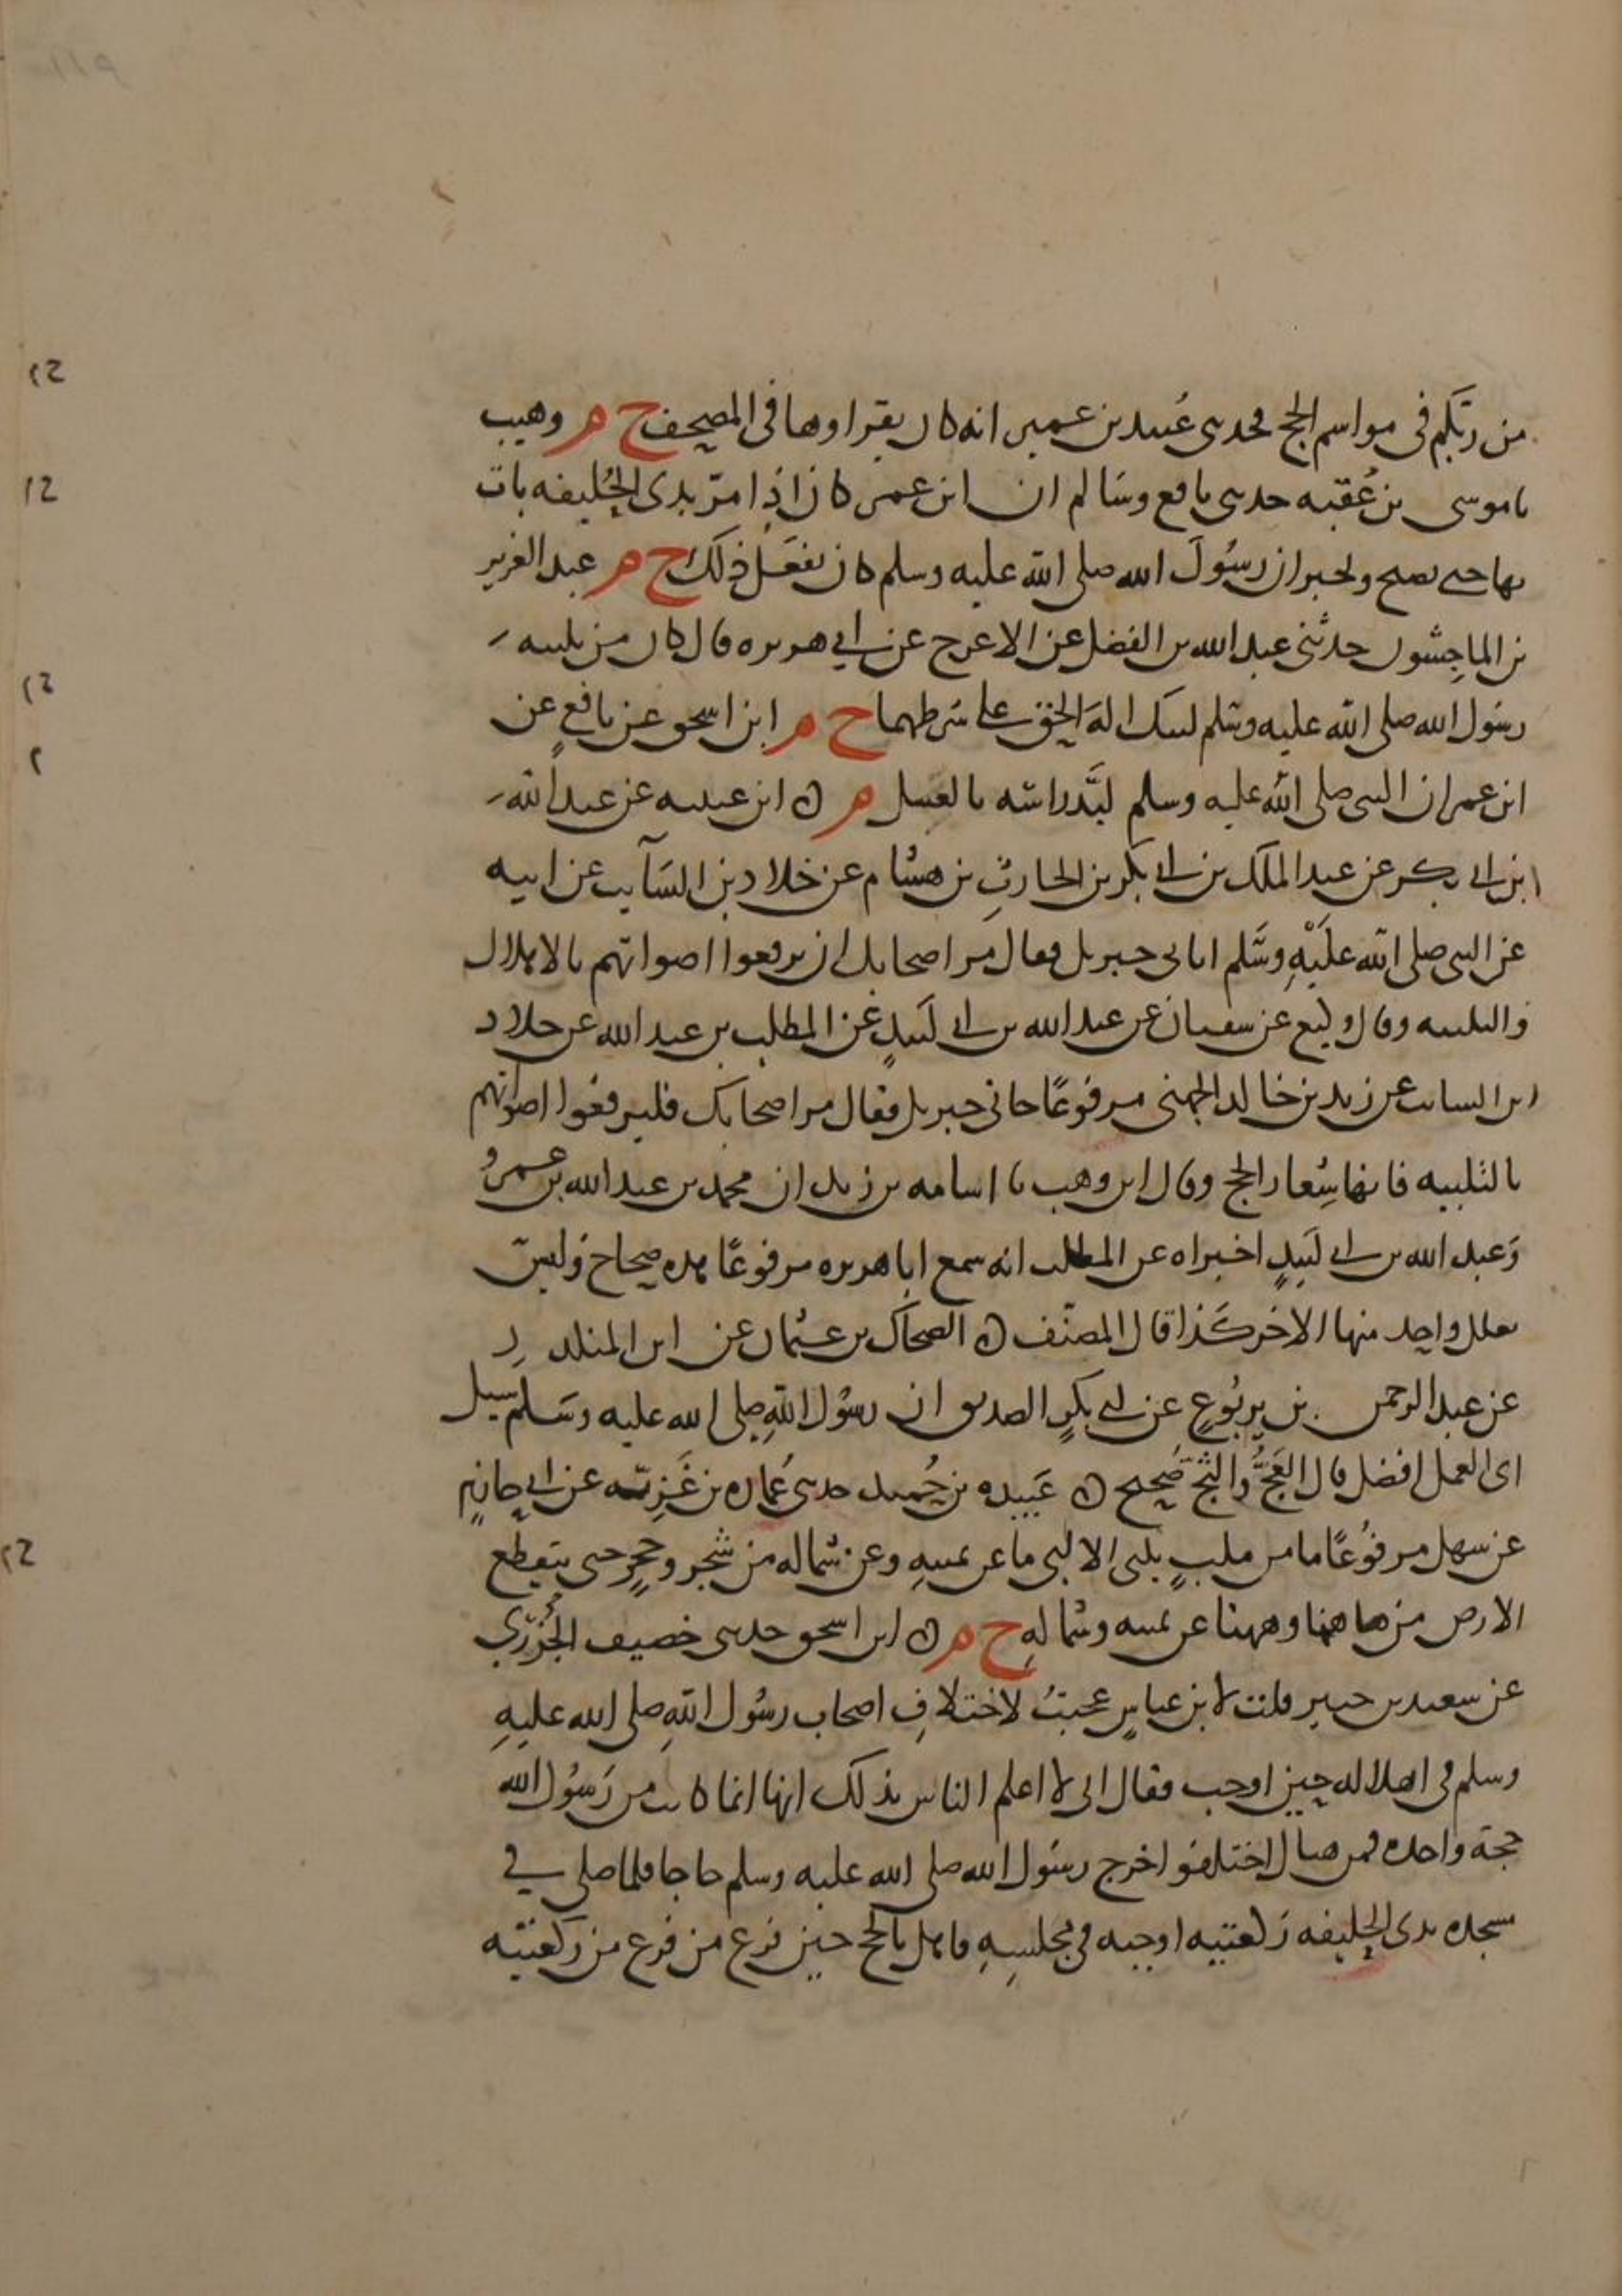 من ربكم في مواسم الحج فحدثني عُبيد بن عمير انه كان يقراوها في المصحف خ م وهيب
نا موسى بن عُقبه حدثني نافع وسَالم ان ابن عمر كان اذِا مرّ بذي الحُليفه بات
بها حتى يصبح ويخبر ان رسُولَ الله صلى الله عليه وسلم كان يفعَل ذلك خ م عبد العزيز
بن الماجِشُون حدثني عبد الله بن الفضل عن الاعرج عن ابي هريره قال كان من تلبيه
رسُول الله صلى الله عليه وسَلم لبيك الهَ الحق على شرطهما خ م ابن اسحق عن نافعٍ عن
ابن عمر ان النبي صلى الله عليه وسلم لبَّد راسَه بالعسل م ن ابن عيينه عن عبد الله
ابن ابي بكر عن عبد الملك بن ابي بكر بن الحارثِ بن هشام عن خلاد بن السَآيب عن ابيه
عن النبي صلى الله علَيْهِ وسَّلم اتاني جبريل فقال مر اصحابك ان يرفعوا اصواتهم بالاهلال
والتلبيه وقال وكيع عن سفيان عن عبد الله بن ابي لَبيدٍ عن المطلب بن عبد الله عن خلاد
ابن السائب عن زيد بن خالد الجهني مرفوعًا جاني جبريل فقال مر اصحابك فليرفعوا اصواتهم
بالتلبيه فانها شِعار الحج وقال ابن وهب نا اسامه بن زيد ان محمد بن عبد الله بن عمرو
وَعبد الله بن ابي لَبيدٍ اخبراه عن المطلب انه سمع ابا هريره مرفوعًا هذه صحاح وليسَ
يعلل واحد منها الاخر كَذا قال المصنّف ن الضحاك بن عثمان عن ابن المنكدر
عن عبد الرحمن بن يربُوعٍ عن ابي بكرٍ الصديق ان رسُول اللهِ صلى الله عليه وسَلم سيل
اى العمل افضل قال العَجُّ والثج صَحيح ن عَبيده بن حُميد حدثني عُماره بن غَزِيّه عن ابي حازمٍ
عن سهل مرفوُعًا ما من ملبٍ يلبى الا لبى ما عن يمينهِ وعن شماله من شجر وحجرٍ حتى ينقطع
الارض من هاهنا وههنا عن يمينه وشمالهِ خ م ن ابن اسحق حدثني خصيف الجَزَرِّي
عن سعيد بن جبير قلت لابن عباسٍ عجبتُ لاختلافِ اصحاب رسُول اللهِ صلى الله عليهِ
وسلم في اهلاله حين اوجب فقال اني لاَ اعلم الناس بذلك انها انما كانت من رَسوُل الله
حجة واحده فمن هناك اختلفوا خرج رسُول الله صلى الله عليه وسلم حاجا فلما صلى في
مسجده بذي الحليفه ركعتيه اوجبه في مجلسِهِ فاهل بالحج حين فرغ من فرغ من ركعتيه